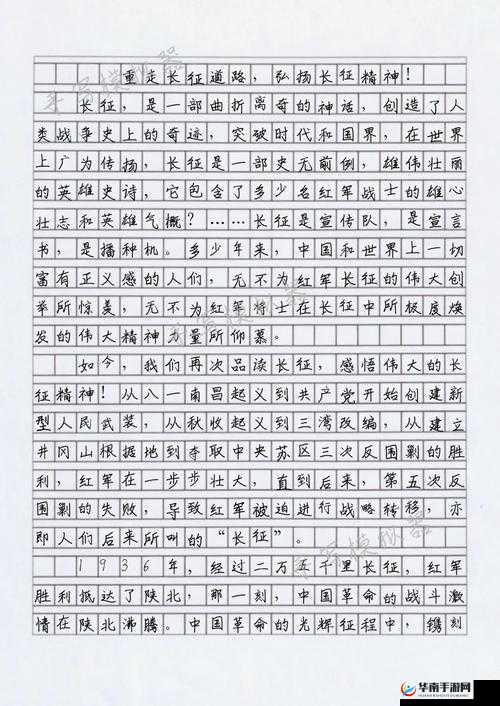 重走长征道路，弘扬长征精神！
长征，是一部曲折离奇的神话，创造了人
类战争史上的奇迹，突破时代和国界，在世界
上广为传扬，长征是一部史无前例，雄伟壮丽
的英雄史诗，它包含了多少名红军战士的雄心
壮志和英雄气概？……长征是宣传队，是宣言
书，是播种机。多少年来，中国和世界上一切
富有正义感的人们，无不为红军长征的伟大创
举所惊羡，无不为红军将士在长征中所极度焕
发的伟大精神力量所仰慕。
如今，我们再次品读长征，感悟伟大的长
征精神！从八一南昌起义到共产党开始创建新
型人民武装，从秋收起义到三湾改编，从建立
井冈山根据地到夺取中央苏区三次反围剿的胜
利，红军在一步步壮大，直到后来，第五次反
围剿的失败，导致红军被迫进行战略转移，亦
即人们后来所叫的“长征”。
1936年，经过二万五千里长征，红军
胜利抵达了陕北，那一刻，中国革命的战斗激
情在陕北沸腾。中国革命的光辉征程中，镌刻
手写模拟器
手写模拟器
手写模拟器
华南手游网